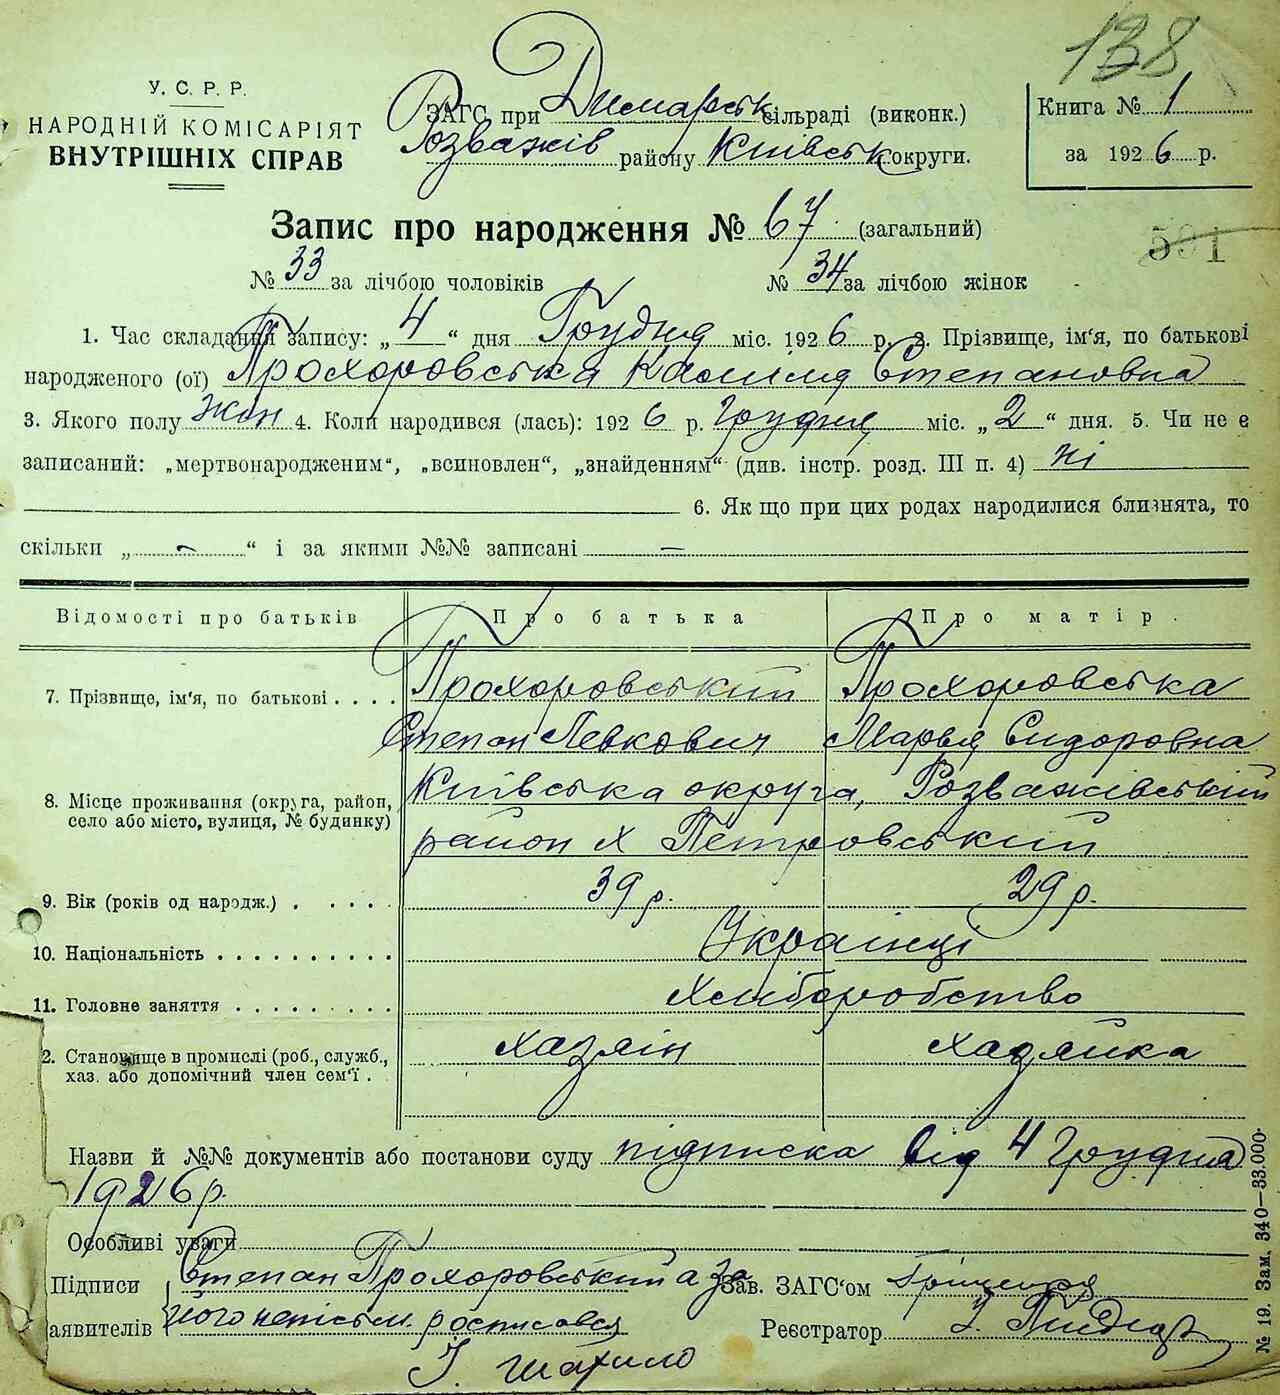 138
У. С. Р. Р.
НАРОДНІЙ КОМІСАРІЯТ
ВНУТРІШНІХ СПРАВ
ЗАГС при Димарськ сільраді (виконк.)
Розважів району Київськ округи.
Книга № 1
за 1926 р.
Запис про народження № 67 (загальний)
591
№ 33 за лічбою чоловіків № 34 за лічбою жінок
1. Час складання запису: „4“ дня Грудня міс. 1926 р. 2. Прізвище, ім'я, по батькові
народженого (ої) Прохоровська Степановна
3. Якого полу жін 4. Коли народився (лась): 1926 р. Грудня міс. „2“ дня. 5. Чи не є
записаний: „мертвонародженим“, „всиновлен“, „знайденням“ (див. інстр. розд. III п. 4) ні
6. Як що при цих родах народилися близнята, то
скільки „ - “ і за якими №№ записані -
Відомості про батьків Про батька Про матір.
7. Прізвище, ім'я, по батькові.... Прохоровський Прохоровська
Степан Левкович Марья Сидоровна
8. Місце проживання (округа, район, село або місто, вулиця, № будинку) Київська округа, Розважівський
район х Петровський
9. Вік (років од народж.) . .... 39 р. 29 р.
10. Національність .......... Українці
11. Головне заняття ......... Хліборобство
2. Становище в промислі (роб., служб., хаз. або допомічний член сем'ї . хазяїн хазяйка
Назви й №№ документів або постанови суду підписка від 4 Грудня
1926 р.
Особливі уваги
Підписи Степан Прохоровський а за Зав. ЗАГС'ом
аявителів його росписався Реєстратор
І.
№ 19. Зам. 340—33.000.